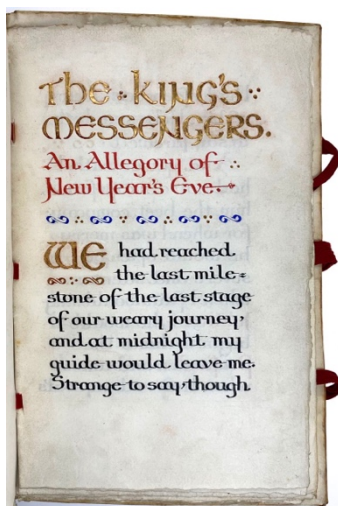 The King's
Messengers.
An Allegory of
New Year's Eve.
We had reached
the last mile=
stone of the last stage
of our weary journey,
and at midnight my
guide would leave me.
Strange to say, though